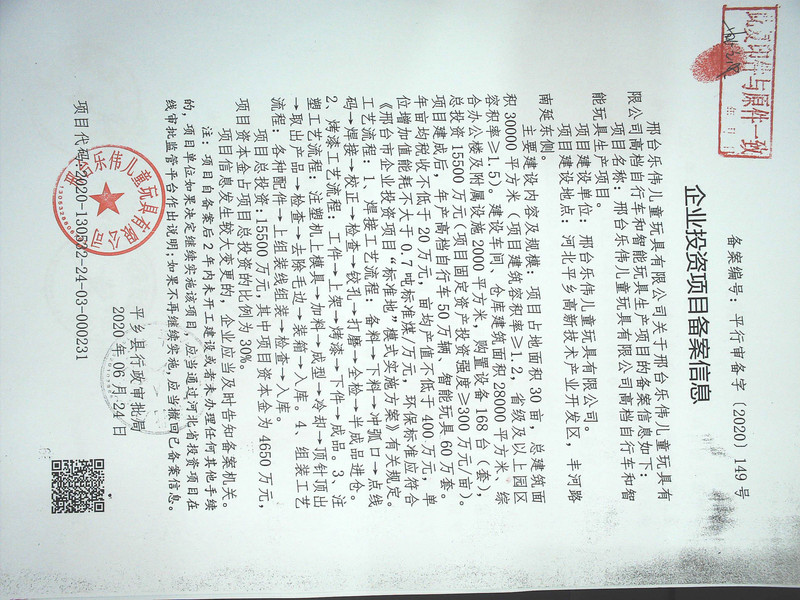 此复印件与原件一致
年 月 日
备案编号：平行审备字〔2020〕149号
企业投资项目备案信息
邢台乐伟儿童玩具有限公司关于邢台乐伟儿童玩具有
限公司高档自行车和智能玩具生产项目的备案信息如下：
项目名称：邢台乐伟儿童玩具有限公司高档自行车和智
能玩具生产项目。
项目建设单位：邢台乐伟儿童玩具有限公司。
项目建设地点：河北平乡高新技术产业开发区，丰河路
南延东侧。
主要建设内容及规模：项目占地面积30亩，总建筑面
积30000平方米（项目建筑容积率≥1.2，省级及以上园区
容积率≥1.5）。建设车间、仓库建筑面积28000平方米、综
合办公楼及附属设施2000平方米，购置设备168台（套），
总投资15500万元（项目固定资产投资强度≥300万元/亩）。
项目建成后，年产高档自行车50万辆、智能玩具60万套。
年亩均税收不低于20万元，亩均产值不低于400万元，单
位增加值能耗不大于0.7吨标准煤/万元，环保标准应符合
《邢台市企业投资项目“标准地”模式实施方案》有关规定。
工艺流程：1、焊接工艺流程：备料→下料→冲弧口→点线
码→焊接→校正→检查→铰孔→打磨→全检→半成品进仓。
2、烤漆工艺流程：工件→上架→烤漆→下件→成品。3、注
塑工艺流程：注塑机上模具→加料→成型→冷却→顶针顶出
→取出产品→检查→去除毛边→装箱→入库。4、组装工艺
流程：各种配件→上组装线组装→检查→入库。
项目总投资：15500万元，其中项目资本金为4650万元，
项目资本金占项目总投资的比例为30%。
项目信息发生较大变更的，企业应当及时告知备案机关。
注：项目自备案后2年内未开工建设或者未办理任何其他手续
的，项目单位如果决定继续实施该项目，应当通过河北省投资项目在
线审批监管平台作出说明；如果不再继续实施，应当撤回已备案信息。
平乡县行政审批局
2020年06月24日
项目代码：2020-130532-24-03-000231
邢台乐伟儿童玩具有限公司